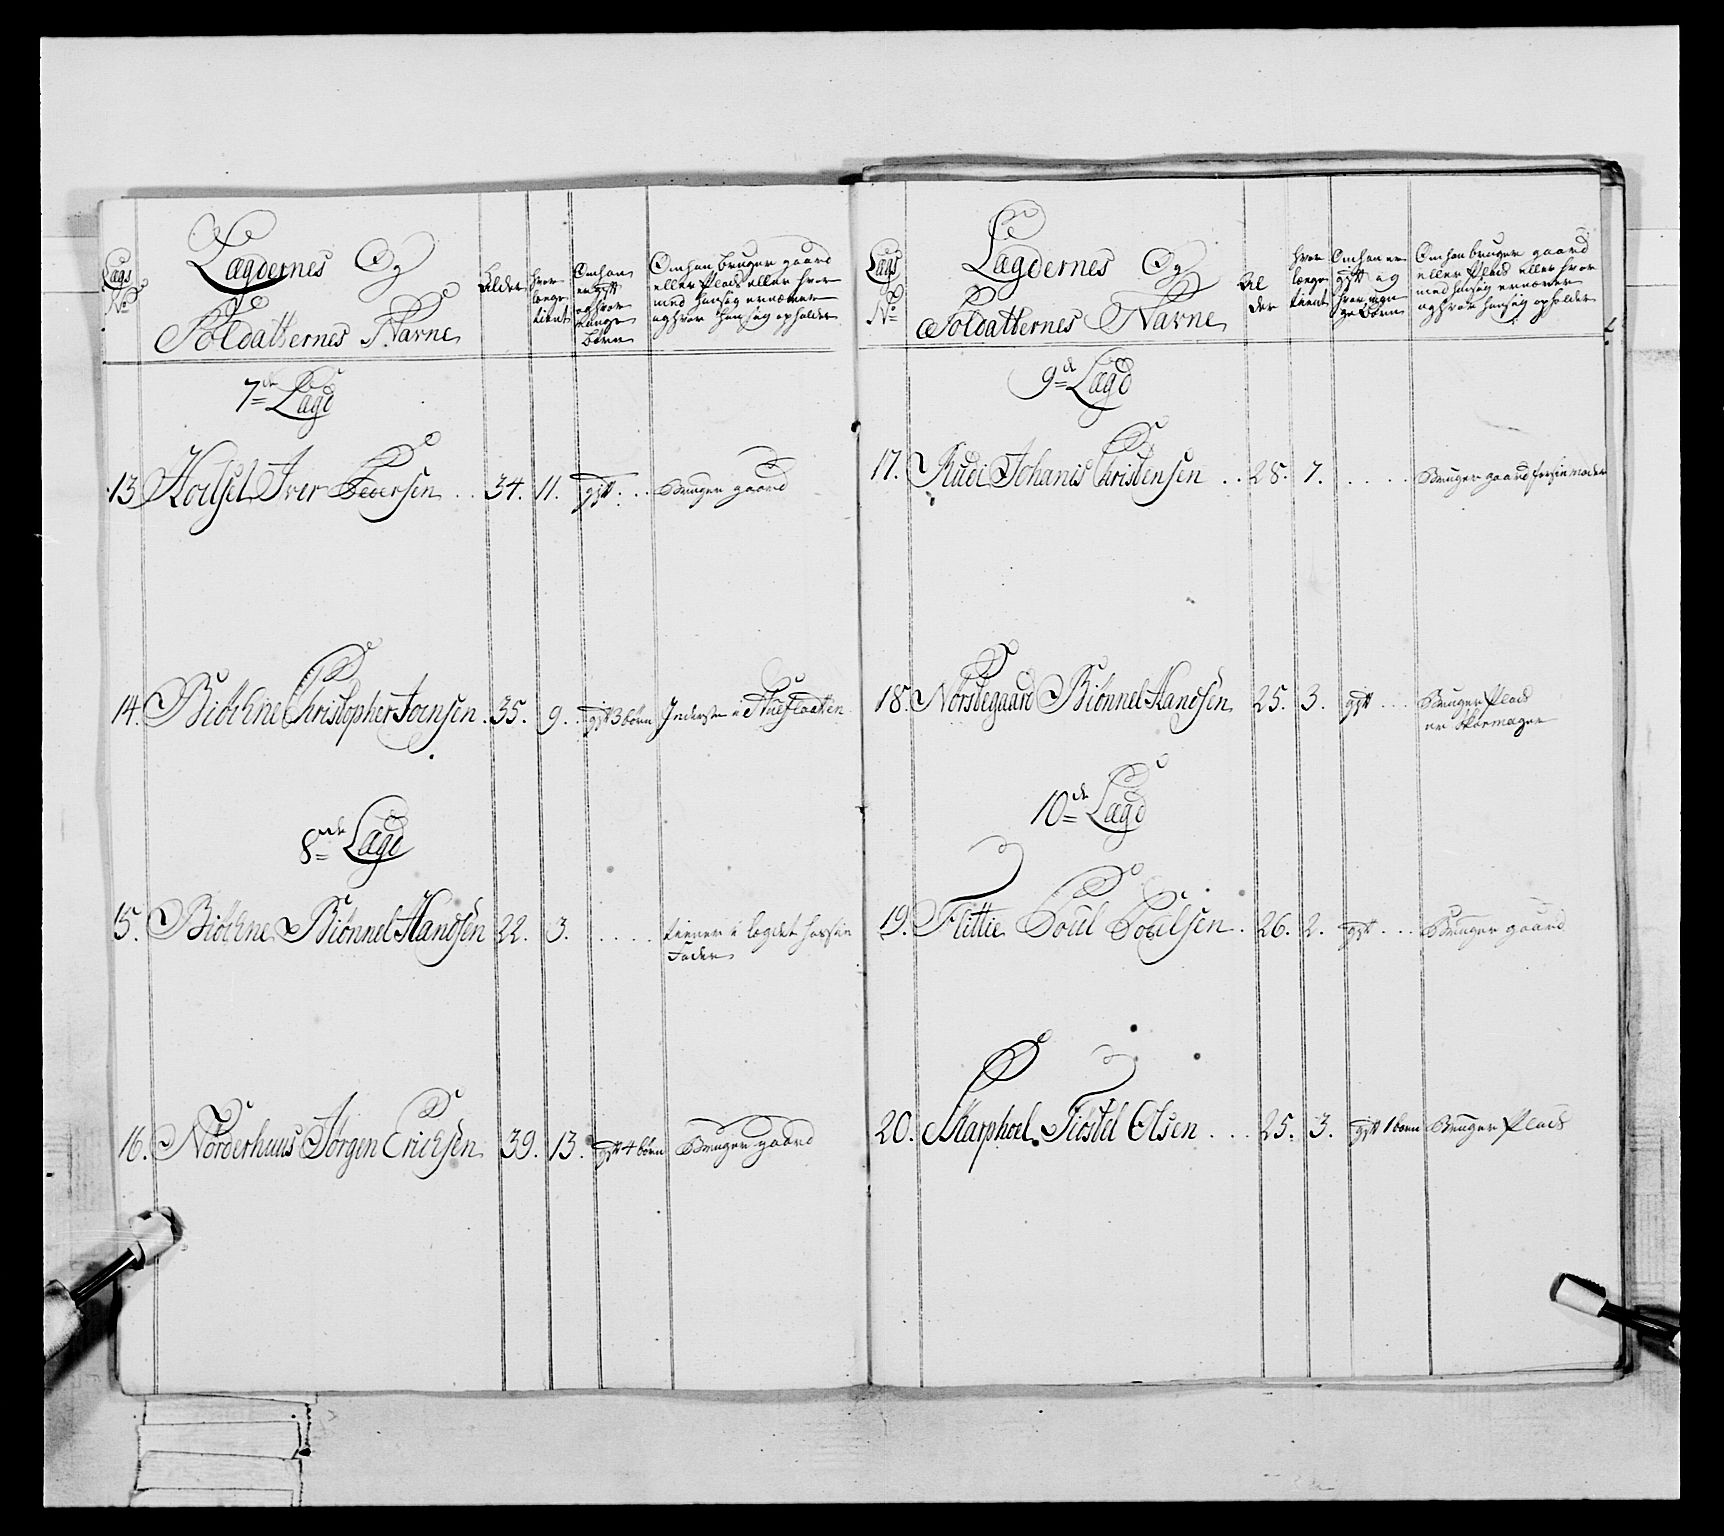 Lægs
No
Lægdernes Og
Soldatternes Navne
Alder
hvor
længe
tient
Om han
er gift
og hvor
mange
børn
Om han bruger gaard
eller Plads eller hvor
med han sig ernærer
og hvor han sig opholder
7de Lægd
13 Hoelsel Iver Pedersen .. 34. 11. gift ... Bruger gaard
14. Biøthne Christopher Joensen. 35. 9. gift 3 børn Inderster i
15. Biøthne Biønnel Handsen 22. 3. .... tiener i lægdet hos sin
Fader
8nde Lægd
16. Norderhuus Jørgen Erichsen 39. 13. gift 4 børn Bruger gaard
Lægs
No
Lægdernes Og
Soldatternes Navne
Al
der
hvor
længe
tient
Om han er
gift og
hvor man
ge børn
Om han bruger gaard
eller Plads eller hvor
med han sig ernærer
og hvor han sig opholder
9de Lægd
17. Rudi Johanis Christensen .. 28. 7. .... Bruger gaard for sin moder
18. Nordegaard Biønnel Handsen 25. 3. gift ... Bruger Plads
er skoemager
10de Lægd
19. Flittie Poul Poulsen. 26. 2. gift ... Bruger gaard
20. Skarphoel Tiøstel Olsen .... 25. 3. gift 1 børn Bruger Plads